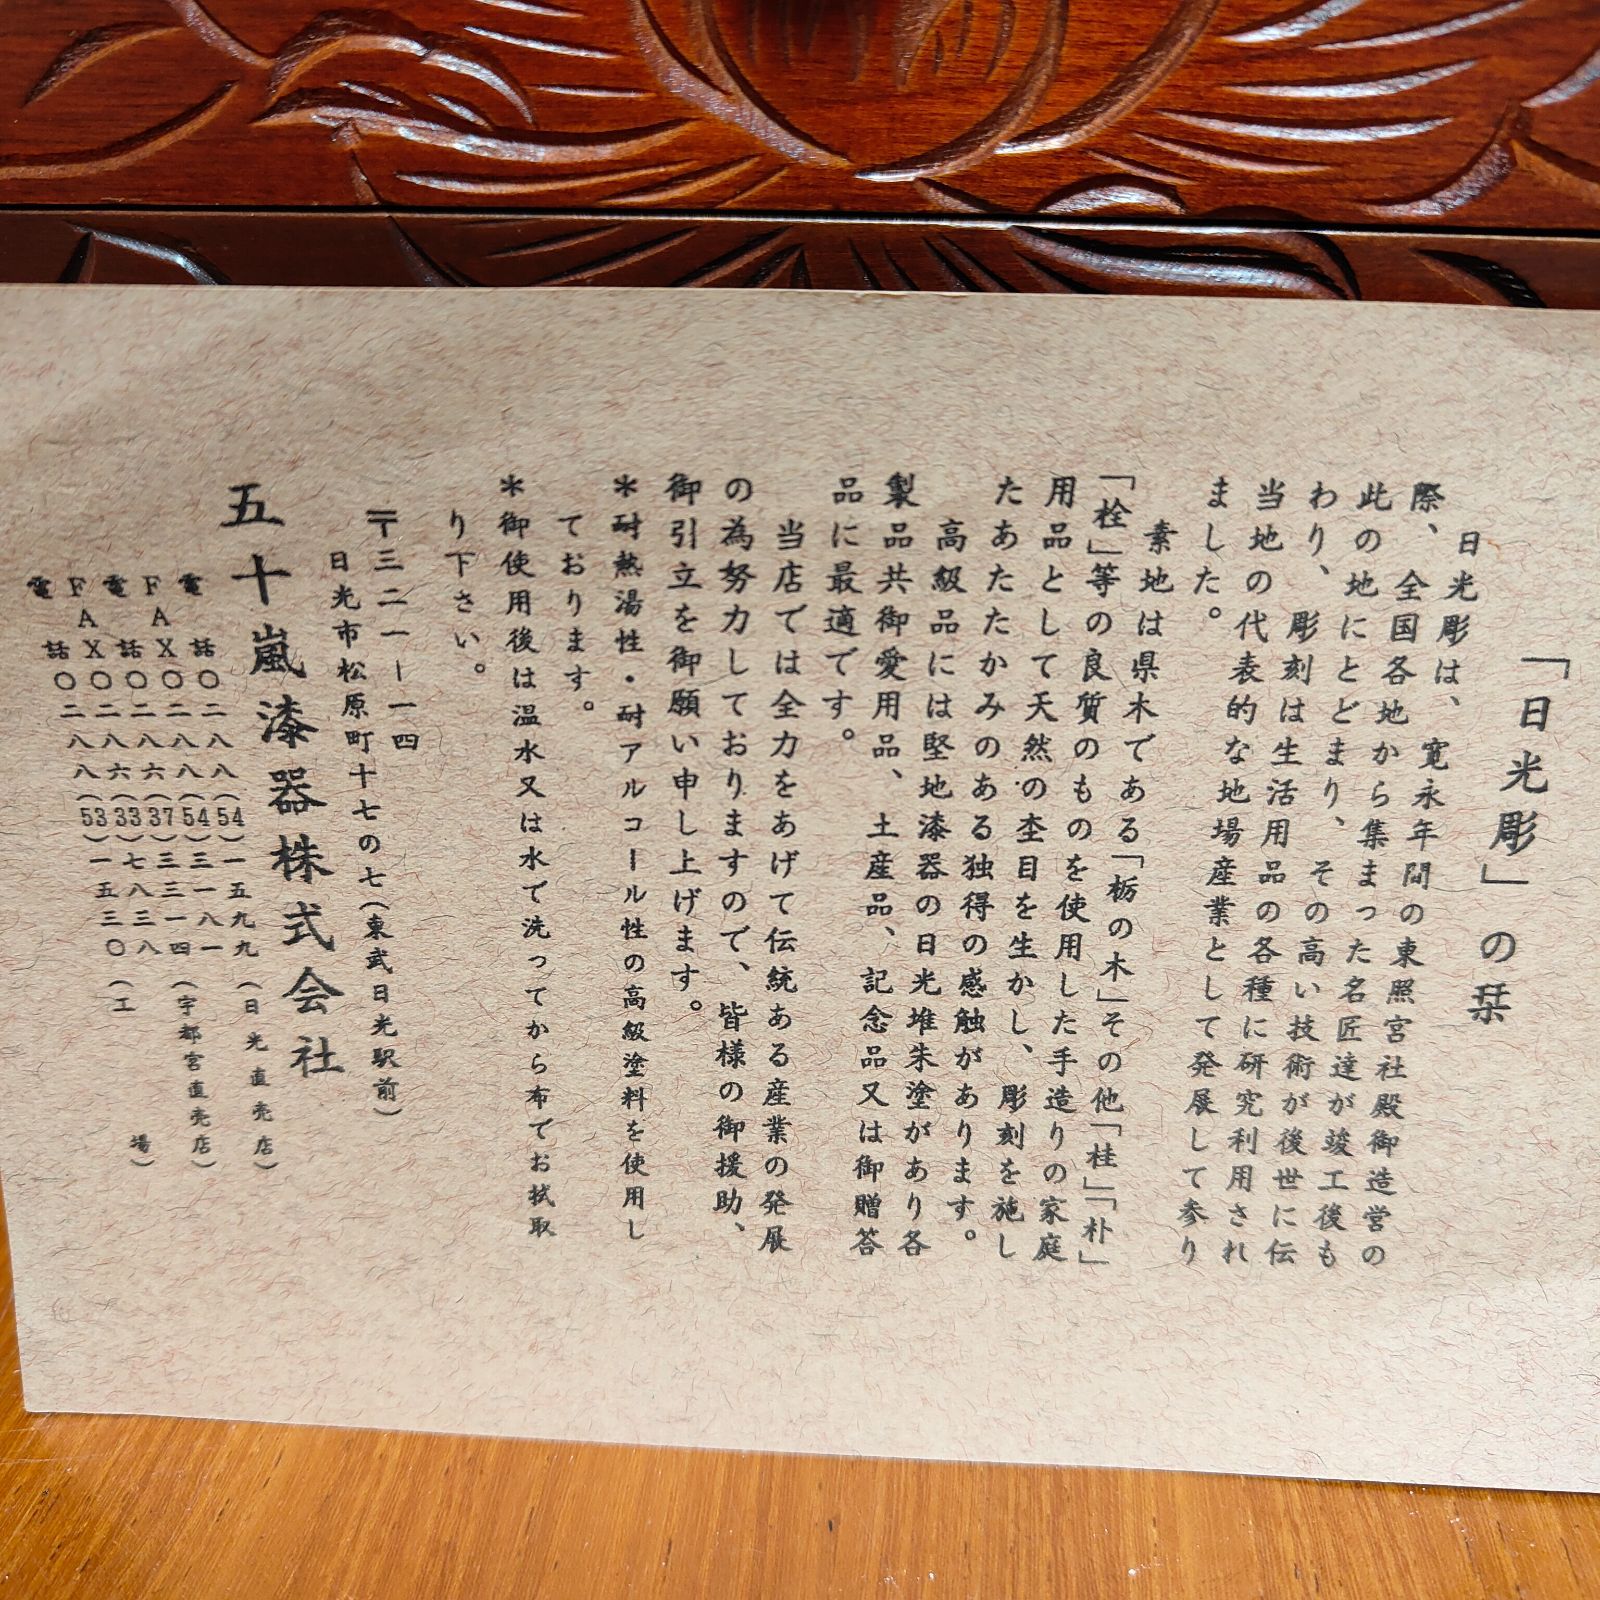 「日光彫」の栞
日光彫は、寛永年間の東照宮社殿御造営の
際、全国各地から集まった名匠達が竣工後も
此の地にとどまり、その高い技術が後世に伝
わり、彫刻は生活用品の各種に研究利用され
当地の代表的な地場産業として発展して参り
ました。
素地は県木である「栃の木」その他「桂」「朴」
「栓」等の良質のものを使用した手造りの家庭
用品として天然の杢目を生かし、彫刻を施し
たあたたかみのある独得の感触があります。
高級品には堅地漆器の日光堆朱塗があり各
製品共御愛用品、土産品、記念品又は御贈答
品に最適です。
当店では全力をあげて伝統ある産業の発展
の為努力しておりますので、皆様の御援助、
御引立を御願い申し上げます。
＊耐熱湯性・耐アルコール性の高級塗料を使用し
ております。
＊御使用後は温水又は水で洗ってから布でお拭取
り下さい。
〒三二一ー一四
日光市松原町十七の七（東武日光駅前）
五十嵐漆器株式会社
電話〇二八八（54）一五九九（日光直売店）
FAX〇二八八（54）三一八一
電話〇二八六（37）三三一四（宇都宮直売店）
FAX〇二八六（33）七八三八
電話〇二八八（53）一五三〇（工場）